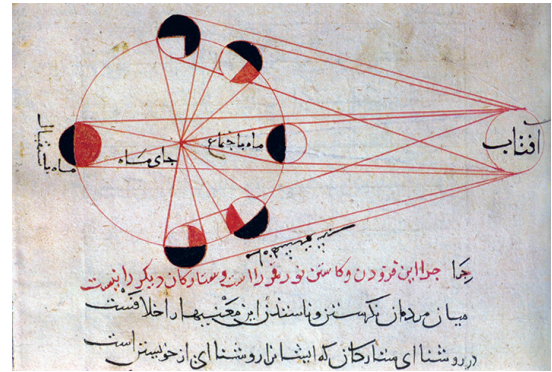 افتاب
ماه باجتماع
جای ماه
ماه باستقبال
جرا این فزودن وکاستن نور قمر را است وستارکان دیکر را نیست
میان مردمان نکرستن این معنیها را خلافست
در روشنای ستارکان که ایشانرا روشنای از خویشتن است